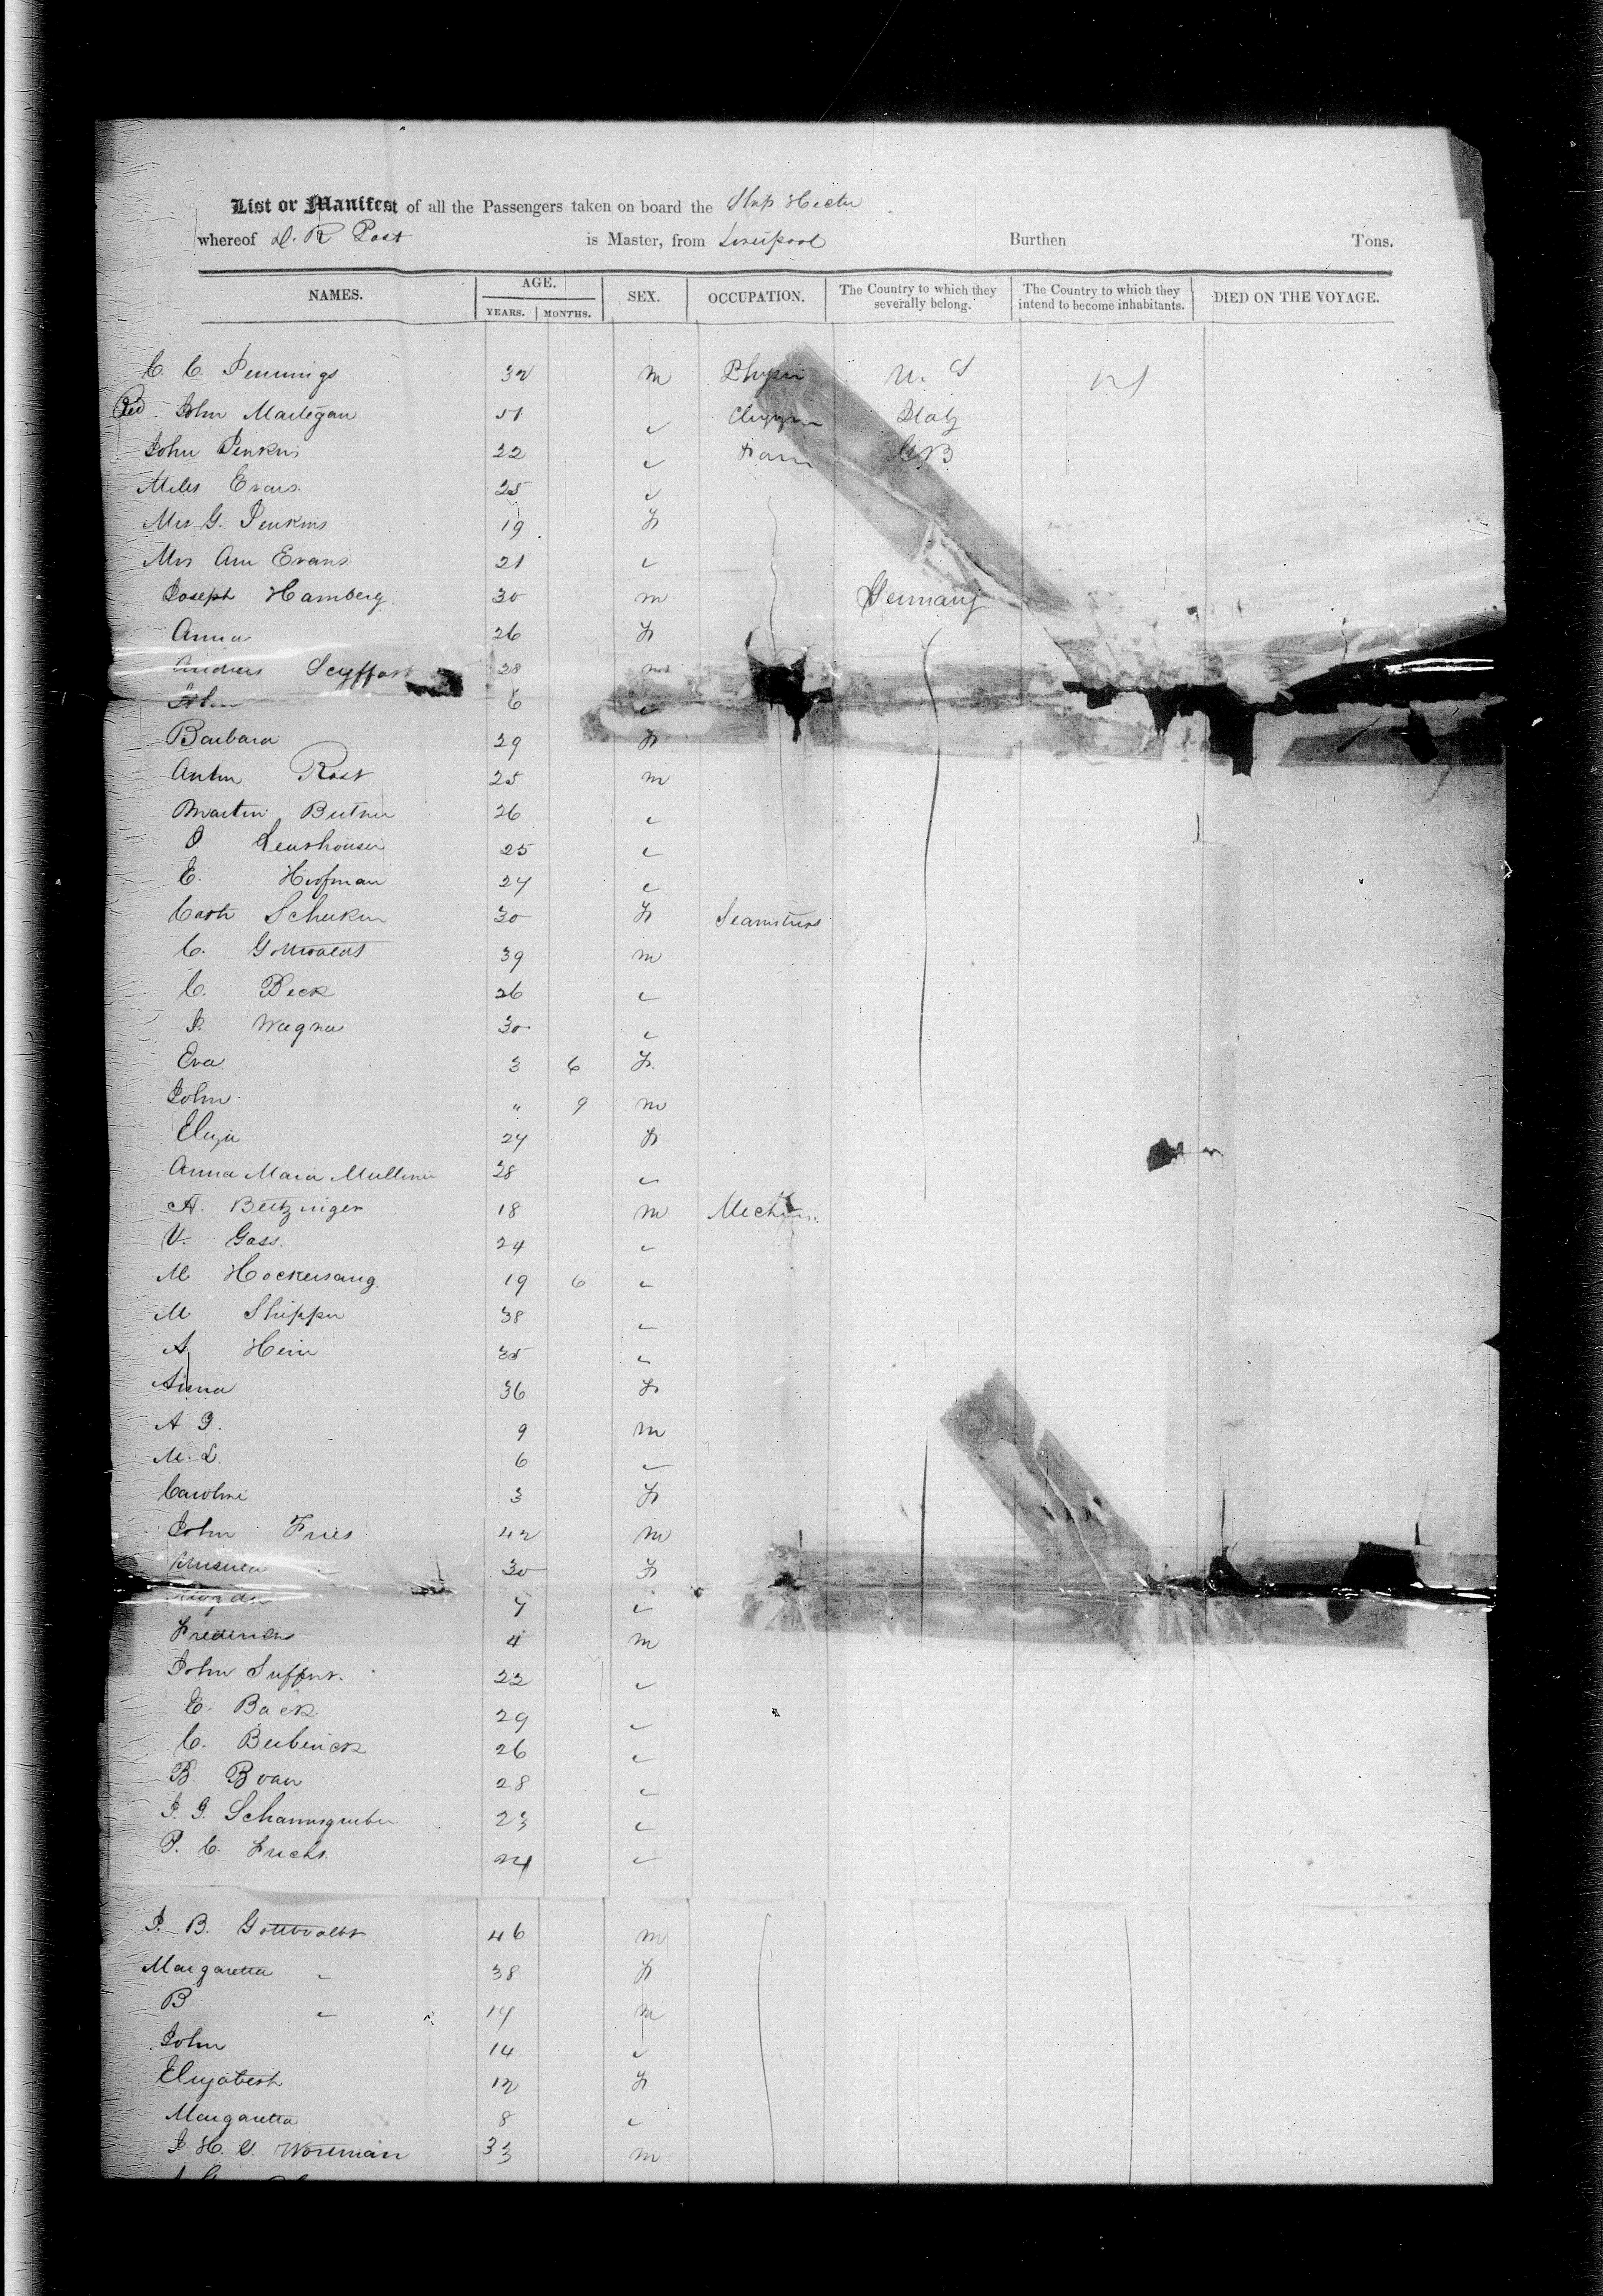 List or Manifest of all the Passengers taken on board the Ship Hector
whereof D. R Post is Master, from Liverpool Burthen Tons.
NAMES. AGE. SEX. OCCUPATION. The Country to which they severally belong. The Country to which they intend to become inhabitants. DIED ON THE VOYAGE.
YEARS. MONTHS.
C. C. Jennings 32 m U. S
Rev. John 51 " Italy
John Jenkins 22 " Farm GB
Miles Evans 25 "
Mrs G. Jenkins 19 F
Mrs Ann Evans 21 "
Joseph Hamberg 30 m Germany
Anna 26 F
Andreas Seyffart 28 m
John 6 "
Barbara 29 F
Anton Rost 25 m
Martin Butner 26 "
25 "
E. Hoofman 24 "
Cath 30 F Seamstress
C. Gottwaldt 39 m
C. Beck 26 "
J. Wagner 30 "
Eva 3 6 F.
John " 9 m
Eliza 24 F
Anna Maria 28 "
A. Beitzinger 18 m
V. Gass. 24 "
M Hockersang 19 6 "
M Shipper 38 "
A Hein 35 "
Anna 36 F
A J. 9 m
M. L 6 "
Caroline 3 F
John Fries 42 m
" 30 F
7 "
Frederick 4 m
John 22 "
E. Back 29 "
C. 26 "
B. 28 "
J. G. 23 "
P. C. Fuchs. 24 "
J. B. Gottwaldt 46 m
Margaretta " 38 F
B " 14 m
John 14 "
Elizabeth 12 F
Margaretta 8 "
J H. G. Workman 33 m